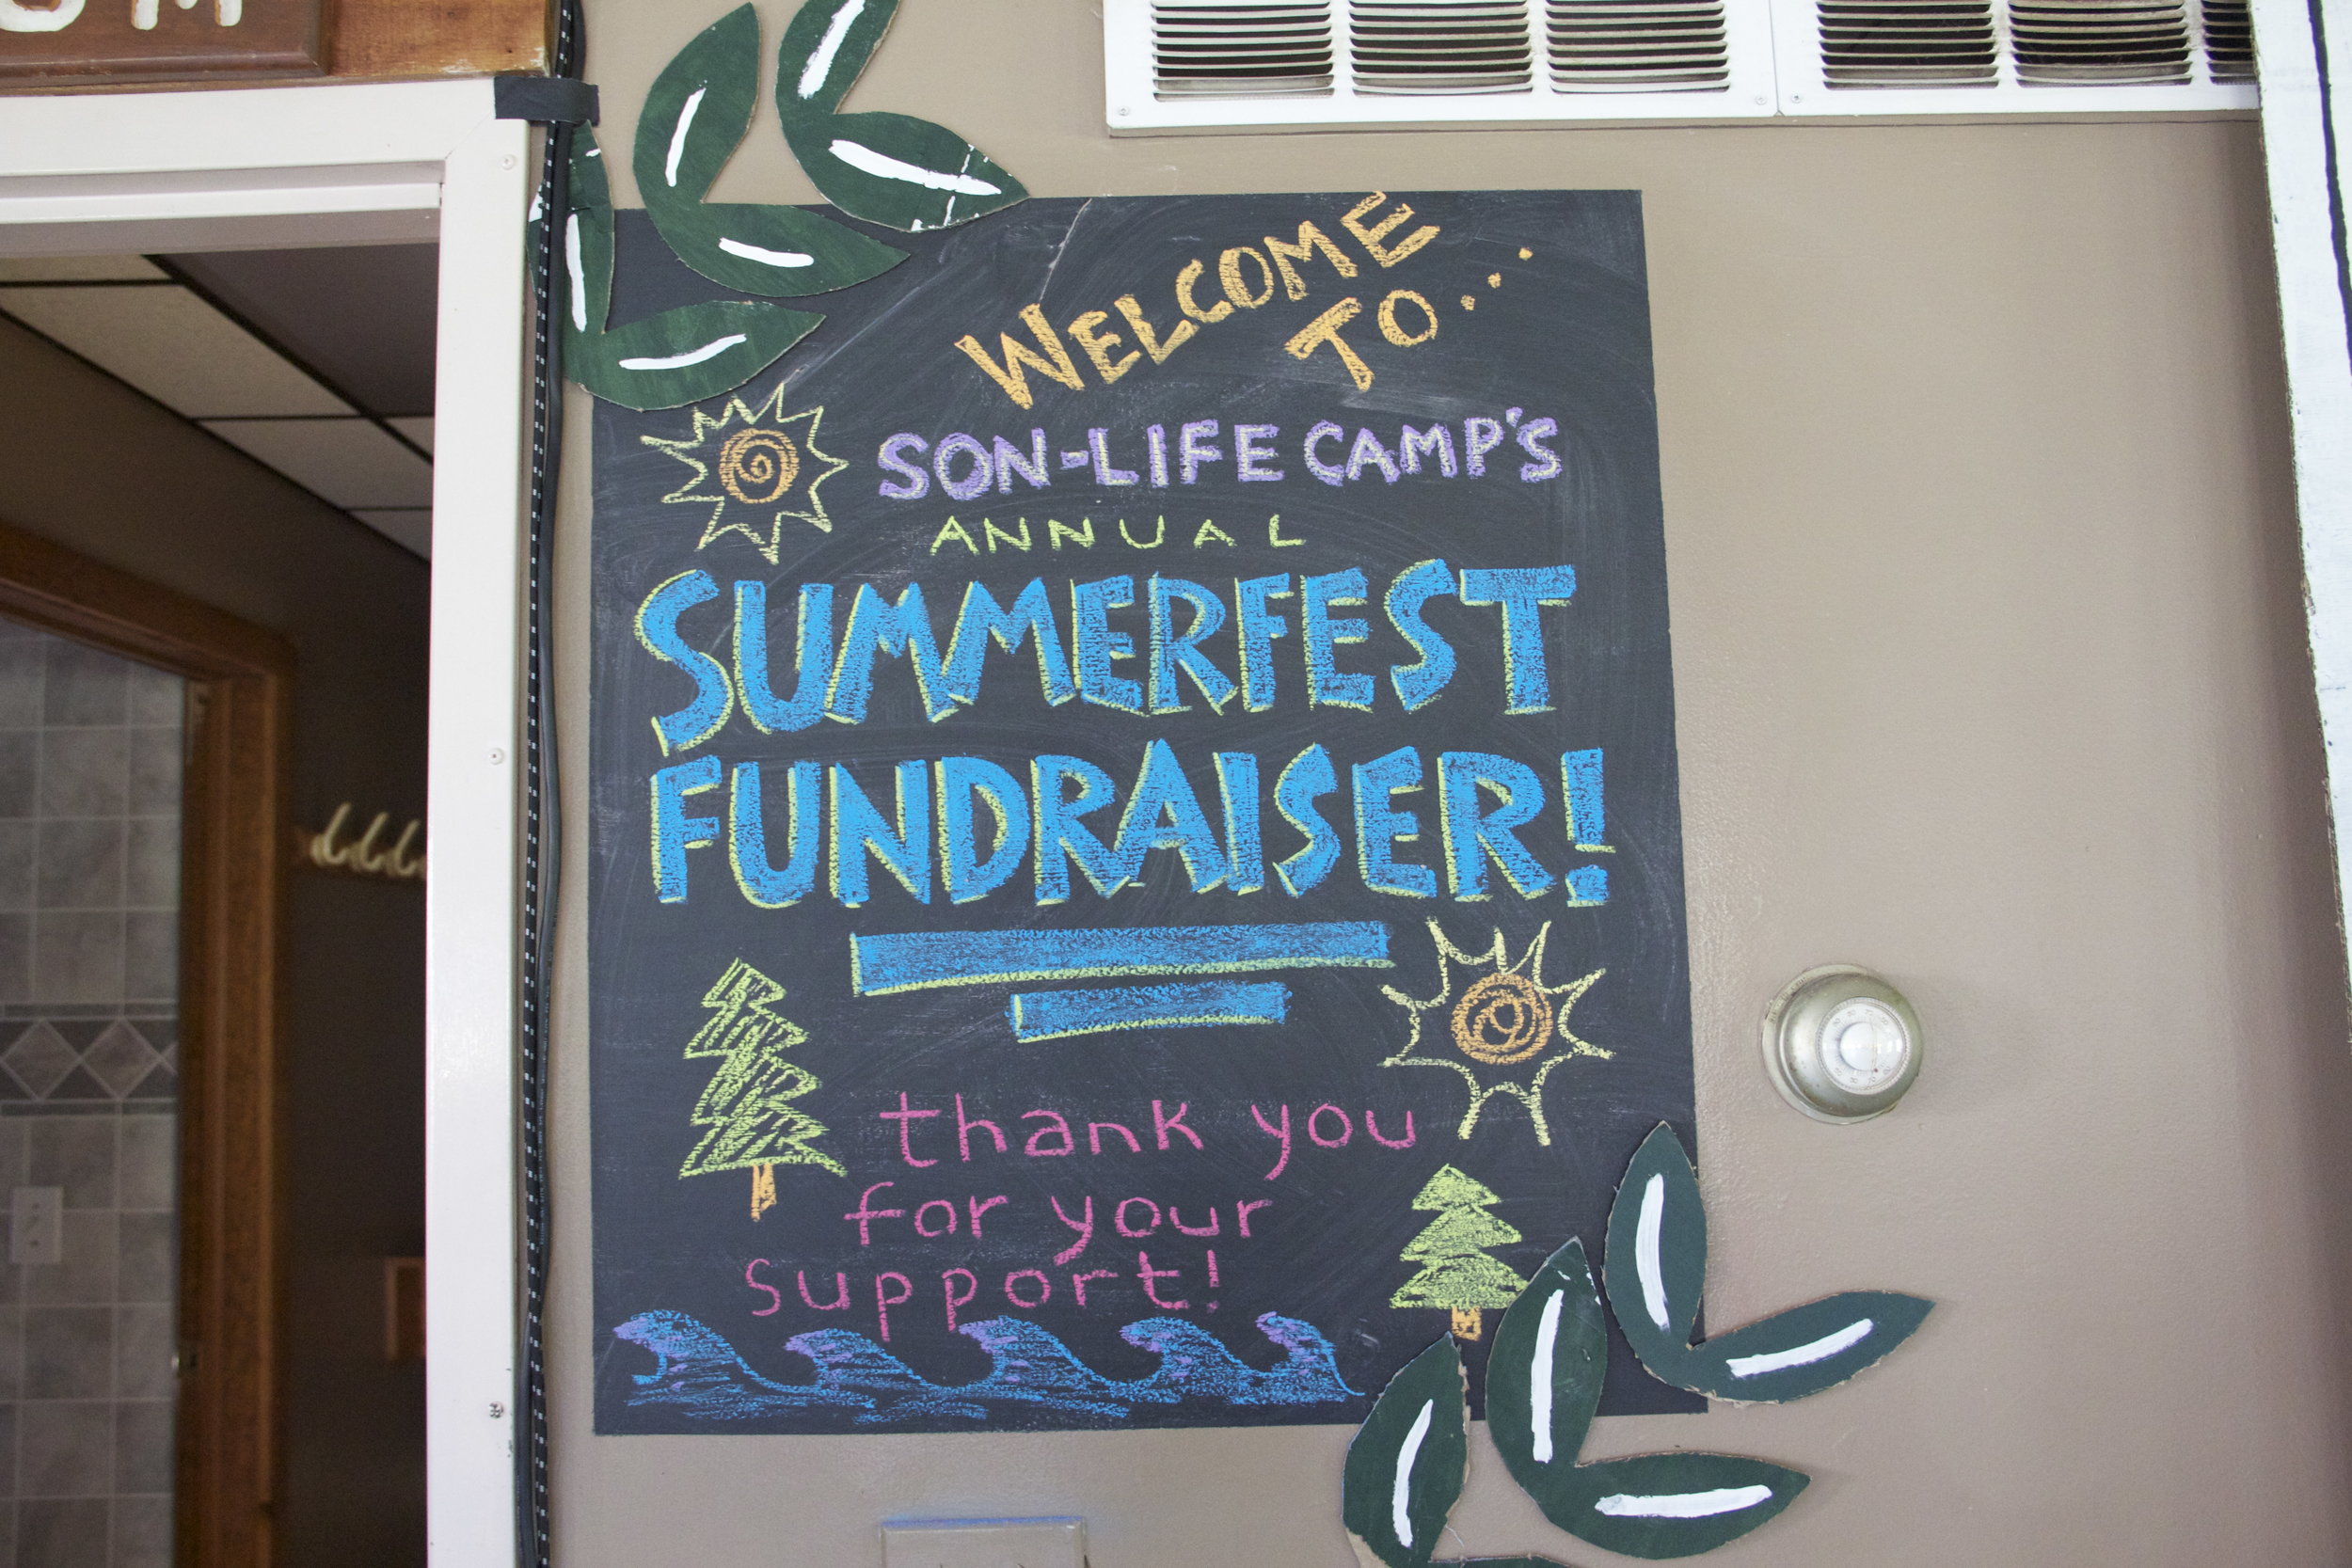 WELCOME
TO...
SON-LIFE CAMP'S
ANNUAL
SUMMERFEST
FUNDRAISER!
thank you
for your
support!